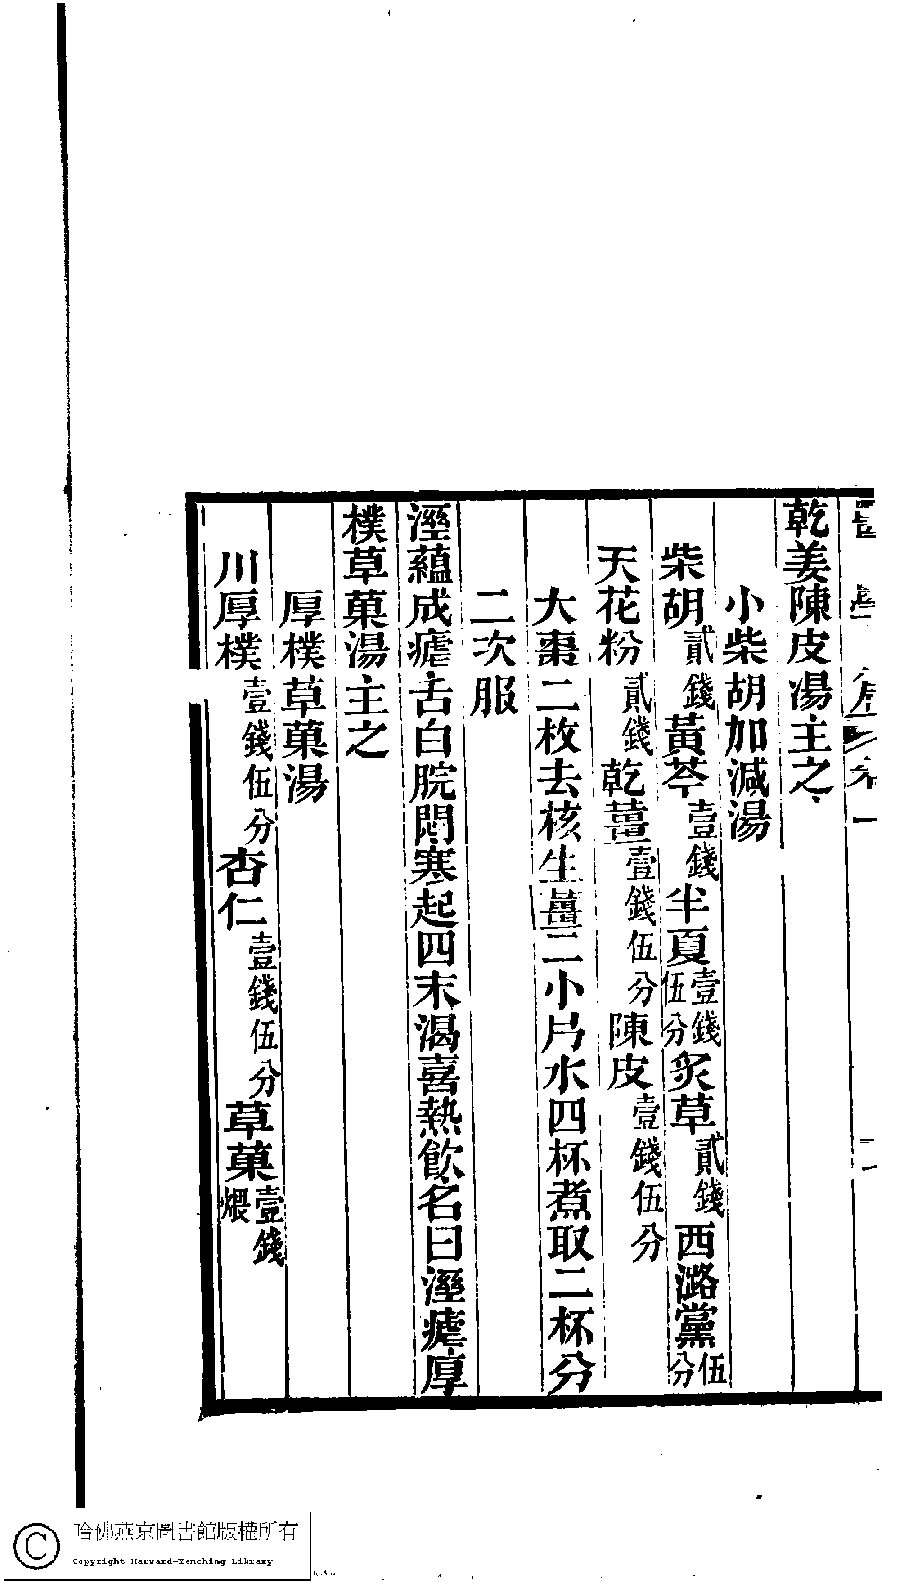 乾姜陳皮湯主之
小柴胡加減湯
柴胡貳錢黃芩壹錢半夏壹錢伍分炙草貳錢西潞黨伍分
天花粉貳錢乾薑壹錢伍分陳皮壹錢伍分
大棗二枚去核生薑二小片水四杯煮取二杯分
二次服
溼蘊成瘧舌白脘悶寒起四末渴喜熱飲名曰溼瘧厚
樸草菓湯主之
厚樸草菓湯
川厚樸壹錢伍分杏仁壹錢伍分草菓壹錢煨
哈佛燕京圖書館版權所有
Copyright Harvard-Yenching Library